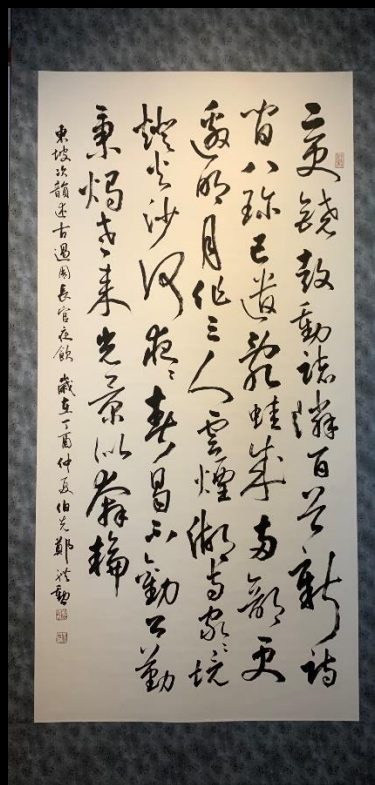 二更鐃鼓動諸隣百首新詩
間八珍已遣亂蛙成兩部更
邀明月作三人雲煙湖寺家〻境
燈火沙河夜〻春曷不勸公勤
秉燭老來光景似奔輪
東坡次韻述古過周長官夜飲 歲在丁酉仲夏伯 鄭 勳